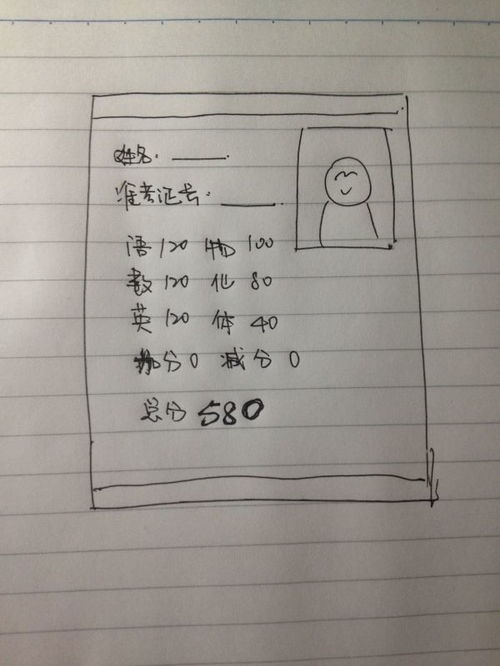 姓名:
准考证号:
语 120 物 100
数 120 化 80
英 120 体 40
加分 0 减分 0
总分 580